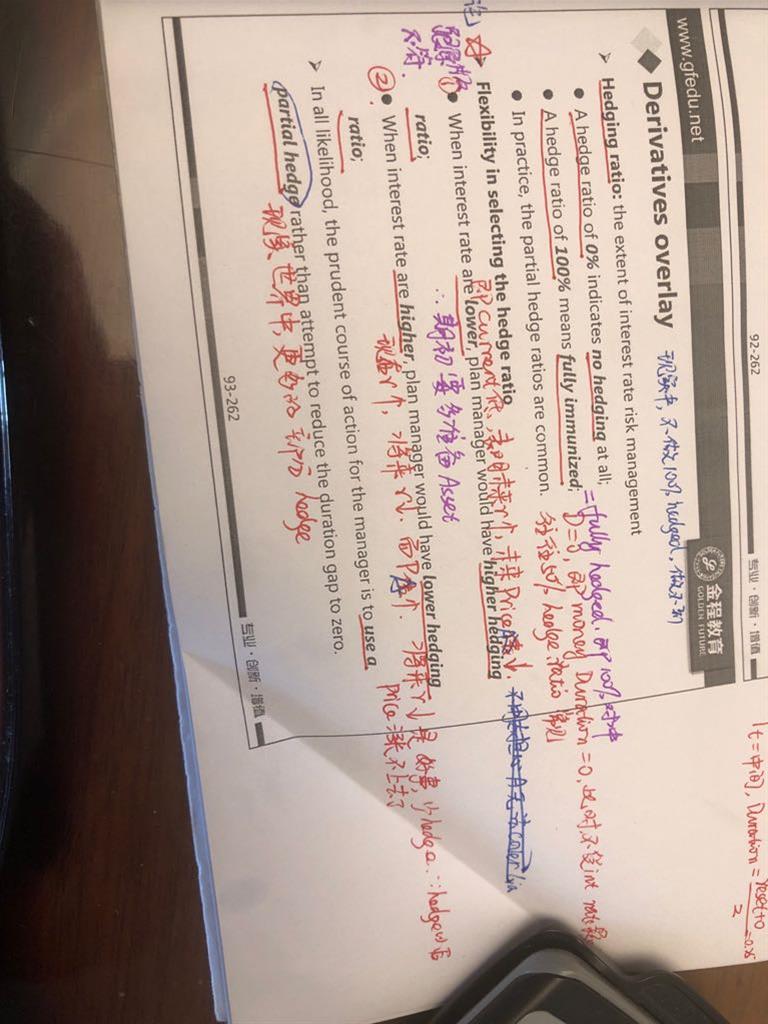 92-262
专业·创新·增值
t=中间, Duration = reset+0
2
www.gfedu.net
金程教育
GOLDEN FUTURE
Derivatives overlay
现实中, 不做100% hedged, 做
Hedging ratio: the extent of interest rate risk management
A hedge ratio of 0% indicates no hedging at all;
=fully hedged. 即100%
A hedge ratio of 100% means fully immunized;
D=0, 即money Duration=0, 此时不受int rate
In practice, the partial hedge ratios are common.
往往50% hedge ratio 常见
Flexibility in selecting the hedge ratio
即current低, 表明未来r↑, 未来Price↓.
① When interest rate are lower, plan manager would have higher hedging
ratio;
∴期初要多准备Asset
② When interest rate are higher, plan manager would have lower hedging
ratio;
现在r↑, 将来r↓. 将来r↓是好事, 少hedge. ∴hedge以后
price涨不上去了
In all likelihood, the prudent course of action for the manager is to use a
partial hedge rather than attempt to reduce the duration gap to zero.
现实世界中, 更多的 hedge
93-262
专业·创新·增值